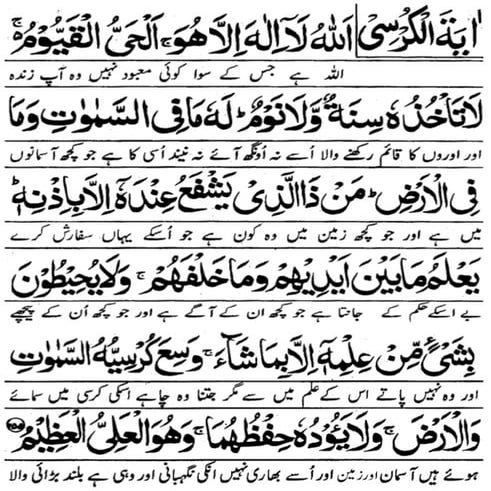 اٰيَةُ الْكُرْسِى اَللّٰهُ لَآ اِلٰهَ اِلَّا هُوَ ۚ اَلْحَىُّ الْقَيُّوْمُ ۚ
اللہ ہے جس کے سوا کوئی معبود نہیں وہ آپ زندہ
لَا تَاْخُذُهٗ سِنَةٌ وَّلَا نَوْمٌ ؕ لَهٗ مَا فِى السَّمٰوٰتِ وَمَا
اور اوروں کا قائم رکھنے والا اُسے نہ اُونگھ آئے نہ نیند اُسی کا ہے جو کچھ آسمانوں
فِى الْاَرْضِ ؕ مَنْ ذَا الَّذِىْ يَشْفَعُ عِنْدَهٗٓ اِلَّا بِاِذْنِهٖ ؕ
میں ہے اور جو کچھ زمین میں وہ کون ہے جو اُسکے یہاں سفارش کرے
يَعْلَمُ مَا بَيْنَ اَيْدِيْهِمْ وَمَا خَلْفَهُمْ ۚ وَلَا يُحِيْطُوْنَ
بے اسکے حکم کے جانتا ہے جو کچھ ان کے آگے ہے اور جو کچھ اُن کے پیچھے
بِشَىْءٍ مِّنْ عِلْمِهٖٓ اِلَّا بِمَا شَآءَ ۚ وَسِعَ كُرْسِيُّهُ السَّمٰوٰتِ
اور وہ نہیں پاتے اس کے علم میں سے مگر جتنا وہ چاہے اسکی کرسی میں سمائے
وَالْاَرْضَ ۚ وَلَا يَـُٔوْدُهٗ حِفْظُهُمَا ۚ وَهُوَ الْعَلِىُّ الْعَظِيْمُ ۝۲۵۵
ہوئے ہیں آسمان اور زمین اور اُسے بھاری نہیں انکی نگہبانی اور وہی ہے بلند بڑائی والا